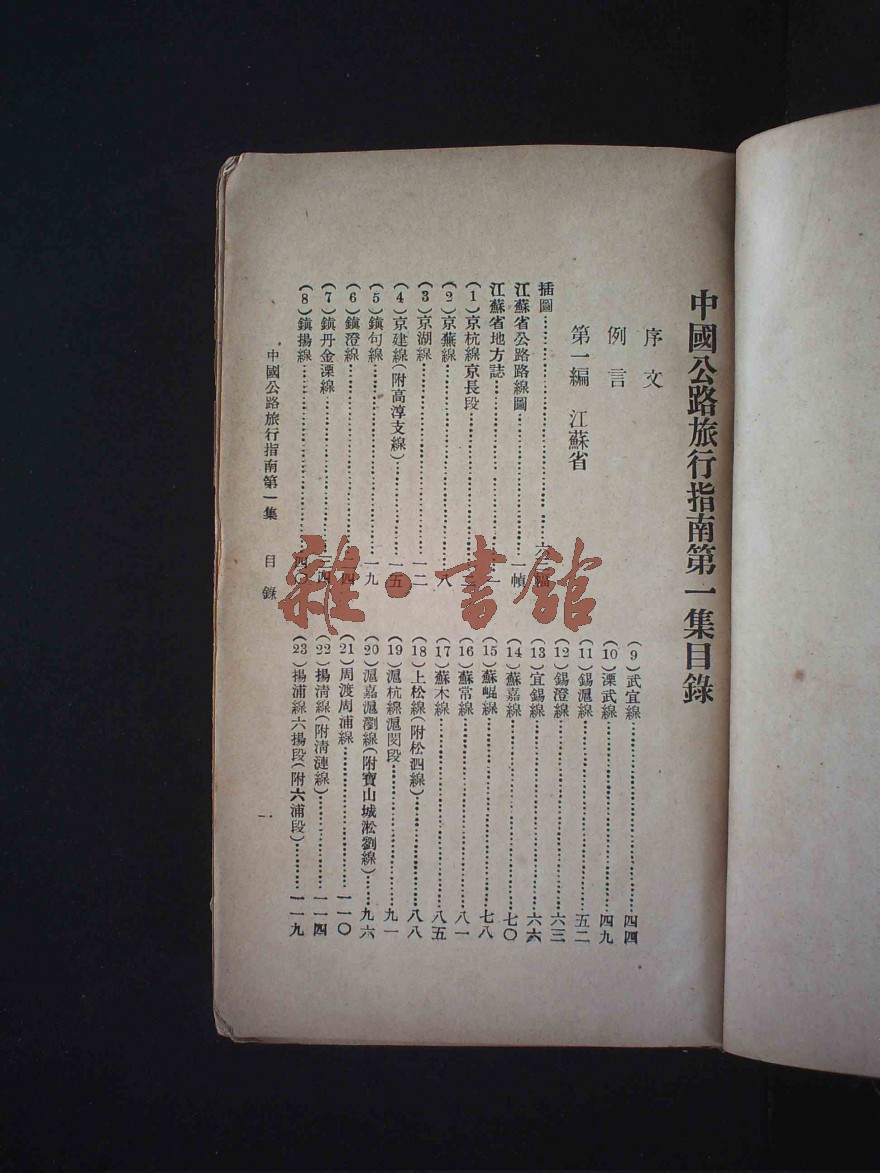 中國公路旅行指南第一集目錄
序文
例言
第一編 江蘇省
插圖……六幅
江蘇省公路路線圖……一幀
江蘇省地方誌……一
(1)京杭線京長段……
(2)京蕪線……八
(3)京湖線……一二
(4)京建線(附高淳支線)……一五
(5)鎮句線……一九
(6)鎮澄線……二四
(7)鎮丹金溧線……三四
(8)鎮揚線……四〇
(9)武宜線……四四
(10)溧武線……四九
(11)錫滬線……五二
(12)錫澄線……六三
(13)宜錫線……六六
(14)蘇嘉線……七〇
(15)蘇崐線……七八
(16)蘇常線……八一
(17)蘇木線……八五
(18)上松線(附松泗線)……八八
(19)滬杭線滬閔段……九一
(20)滬嘉滬瀏線(附寶山城淞劉線)……九六
(21)周渡周浦線……一一〇
(22)揚清線(附清漣線)……一一四
(23)揚浦線六揚段(附六浦段)……一一九
中國公路旅行指南第一集 目錄
一
雜·書館